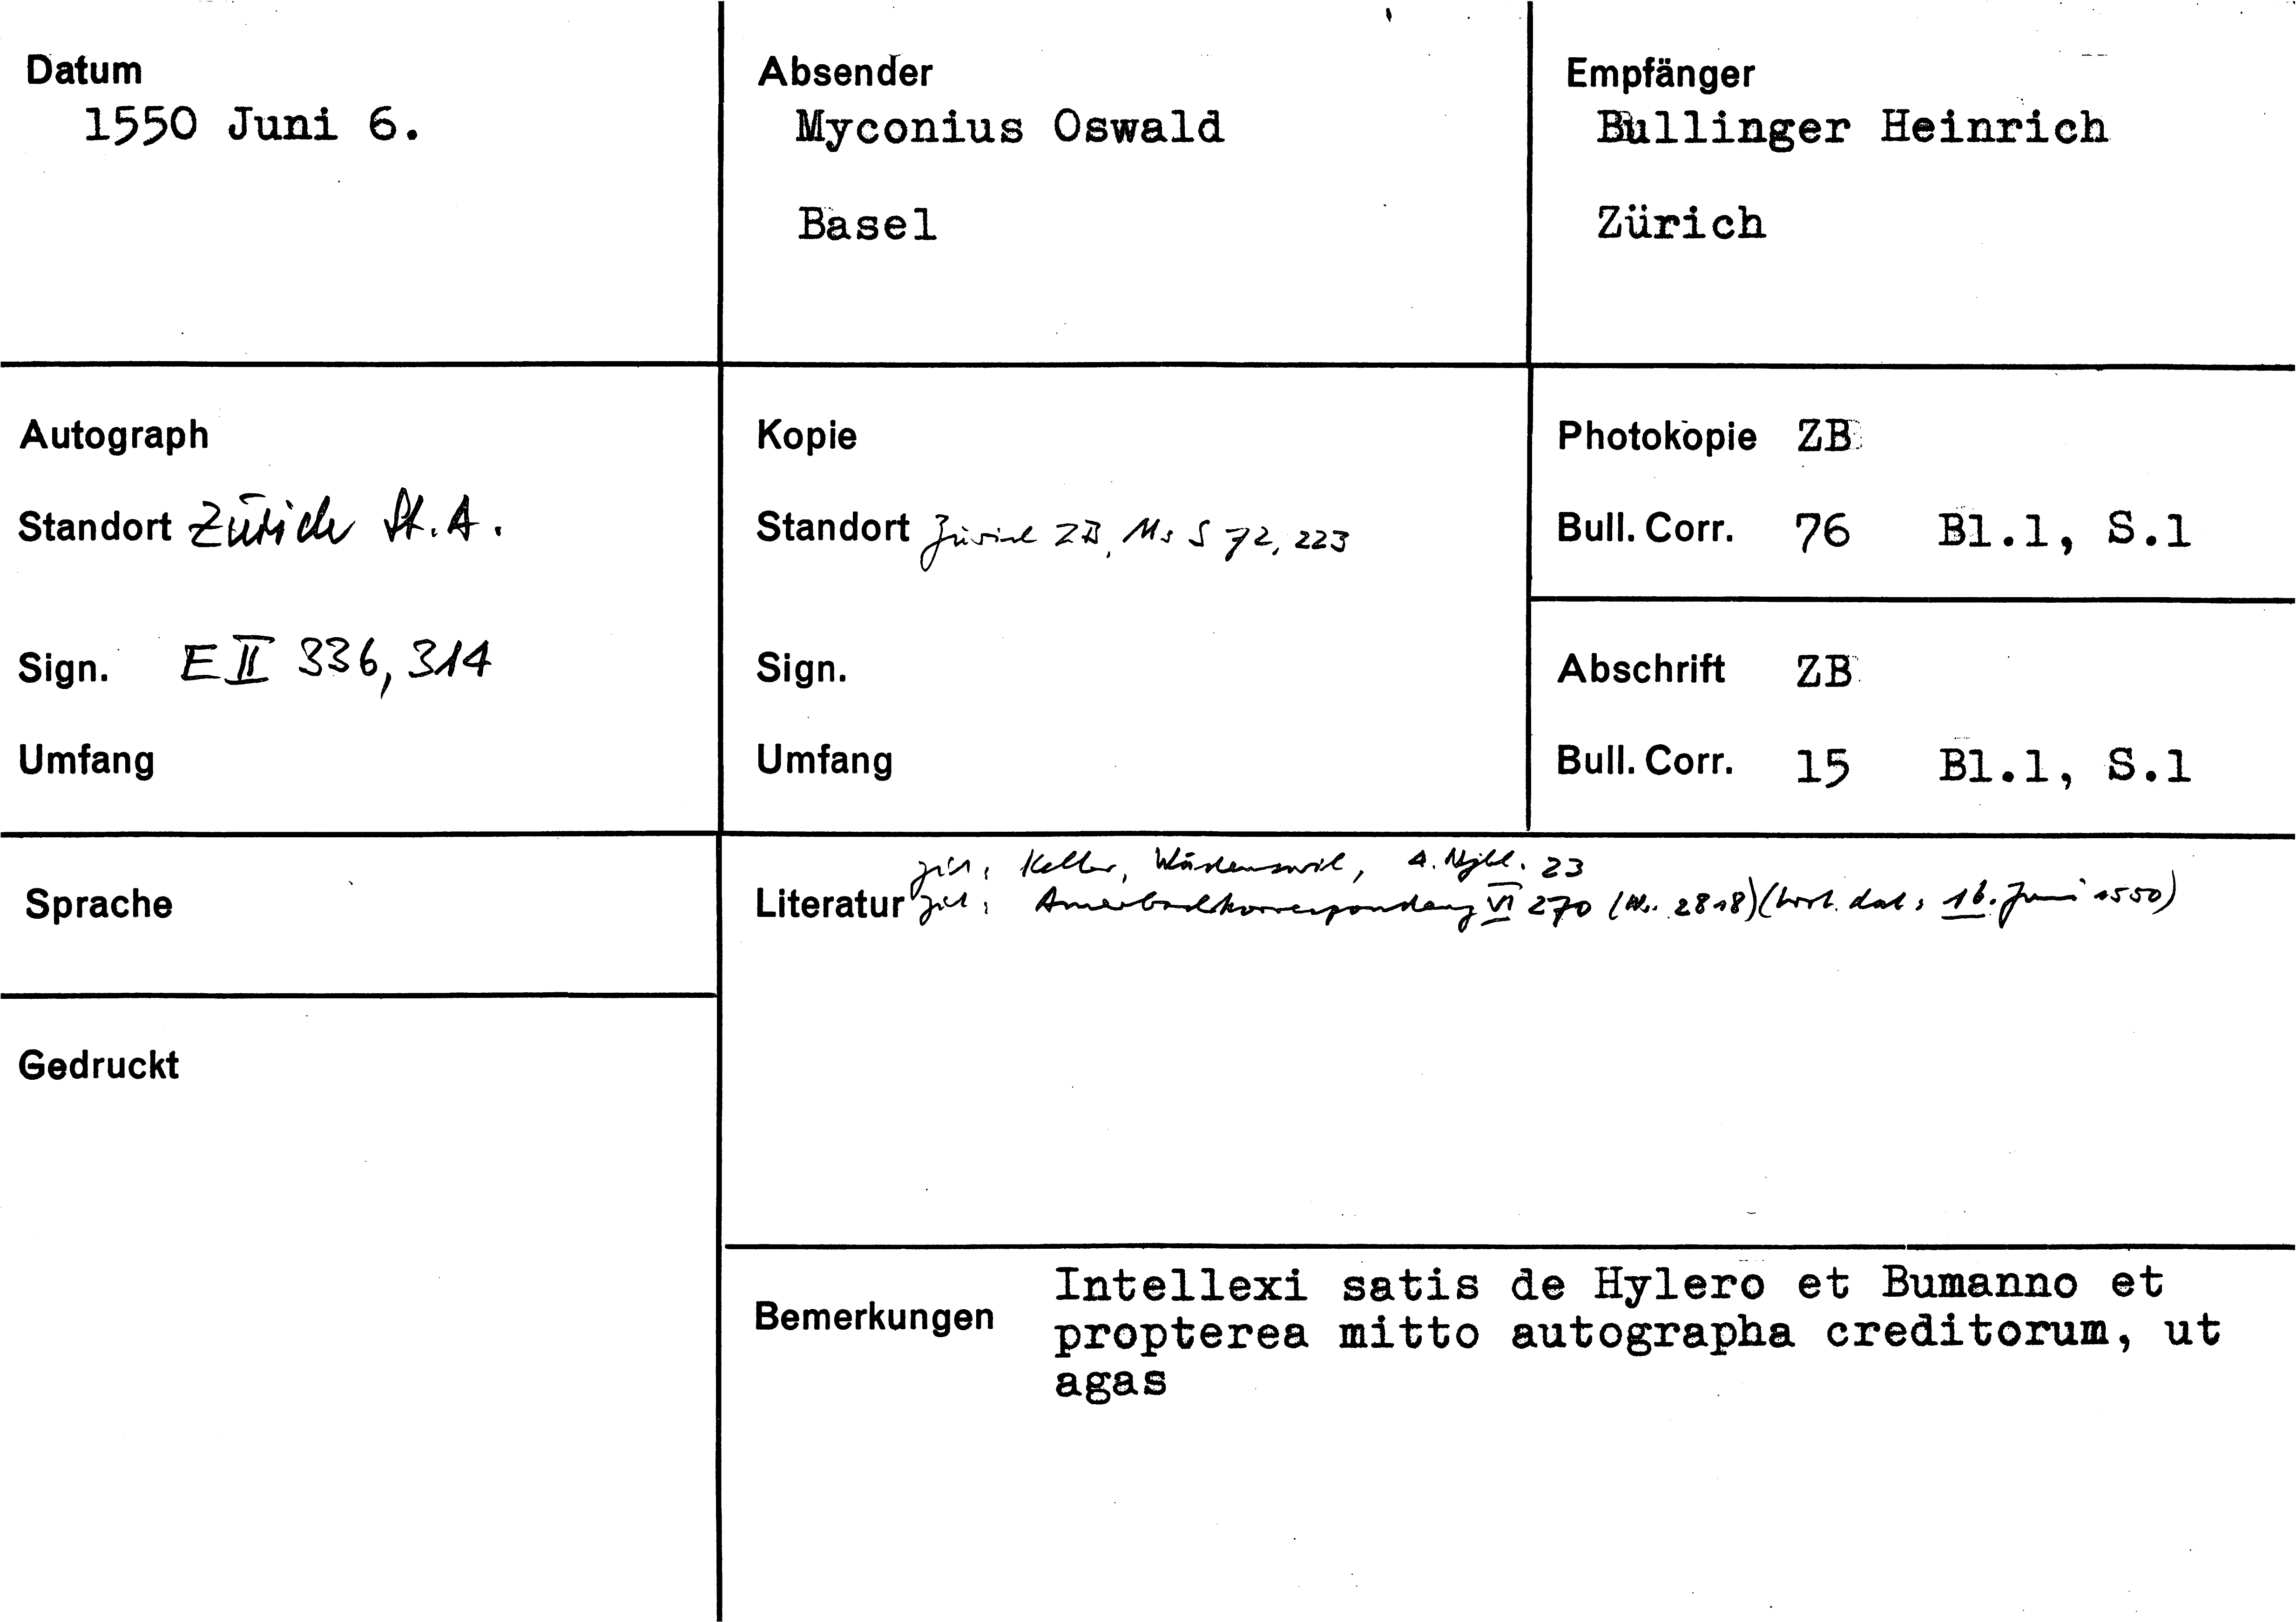 Datum
1550 Juni 6.
Absender
Myconius Oswald
Basel
Empfänger
Bullinger Heinrich
Zürich
Autograph
Standort Zürich St.A.
Sign. E II 336, 314
Umfang
Kopie
Standort Zürich ZB, Ms S 72, 223
Sign.
Umfang
Photokopie ZB
Bull. Corr. 76 Bl.1, S.1
Abschrift ZB
Bull. Corr. 15 Bl.1, S.1
Sprache
Gedruckt
zit: Keller, Wädenswil, 4. Njbl. 23
Literatur zit: Amerbachkorrespondenz VI 270 (Nr. 2818) (dat: 16. Juni 1550)
Bemerkungen
Intellexi satis de Hylero et Bumanno et
propterea mitto autographa creditorum, ut
agas